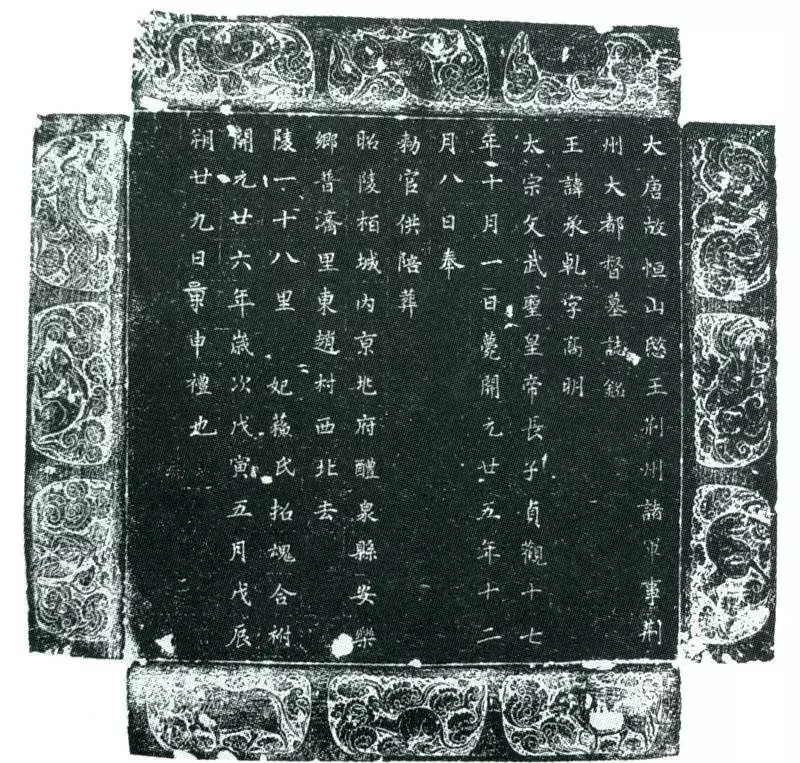 大唐故恒山愍王荆州諸軍事荆
州大都督墓誌銘
王諱承乹字高明
太宗文武聖皇帝長子貞觀十七
年十月一日薨開元廿五年十二
月八日奉
勑官供陪葬
昭陵栢城内京兆府醴泉縣安樂
鄉普濟里東趙村西北去
陵一十八里 妃蘇氏招魂合祔
開元廿六年歲次戊寅五月戊辰
朔廿九日景申禮也